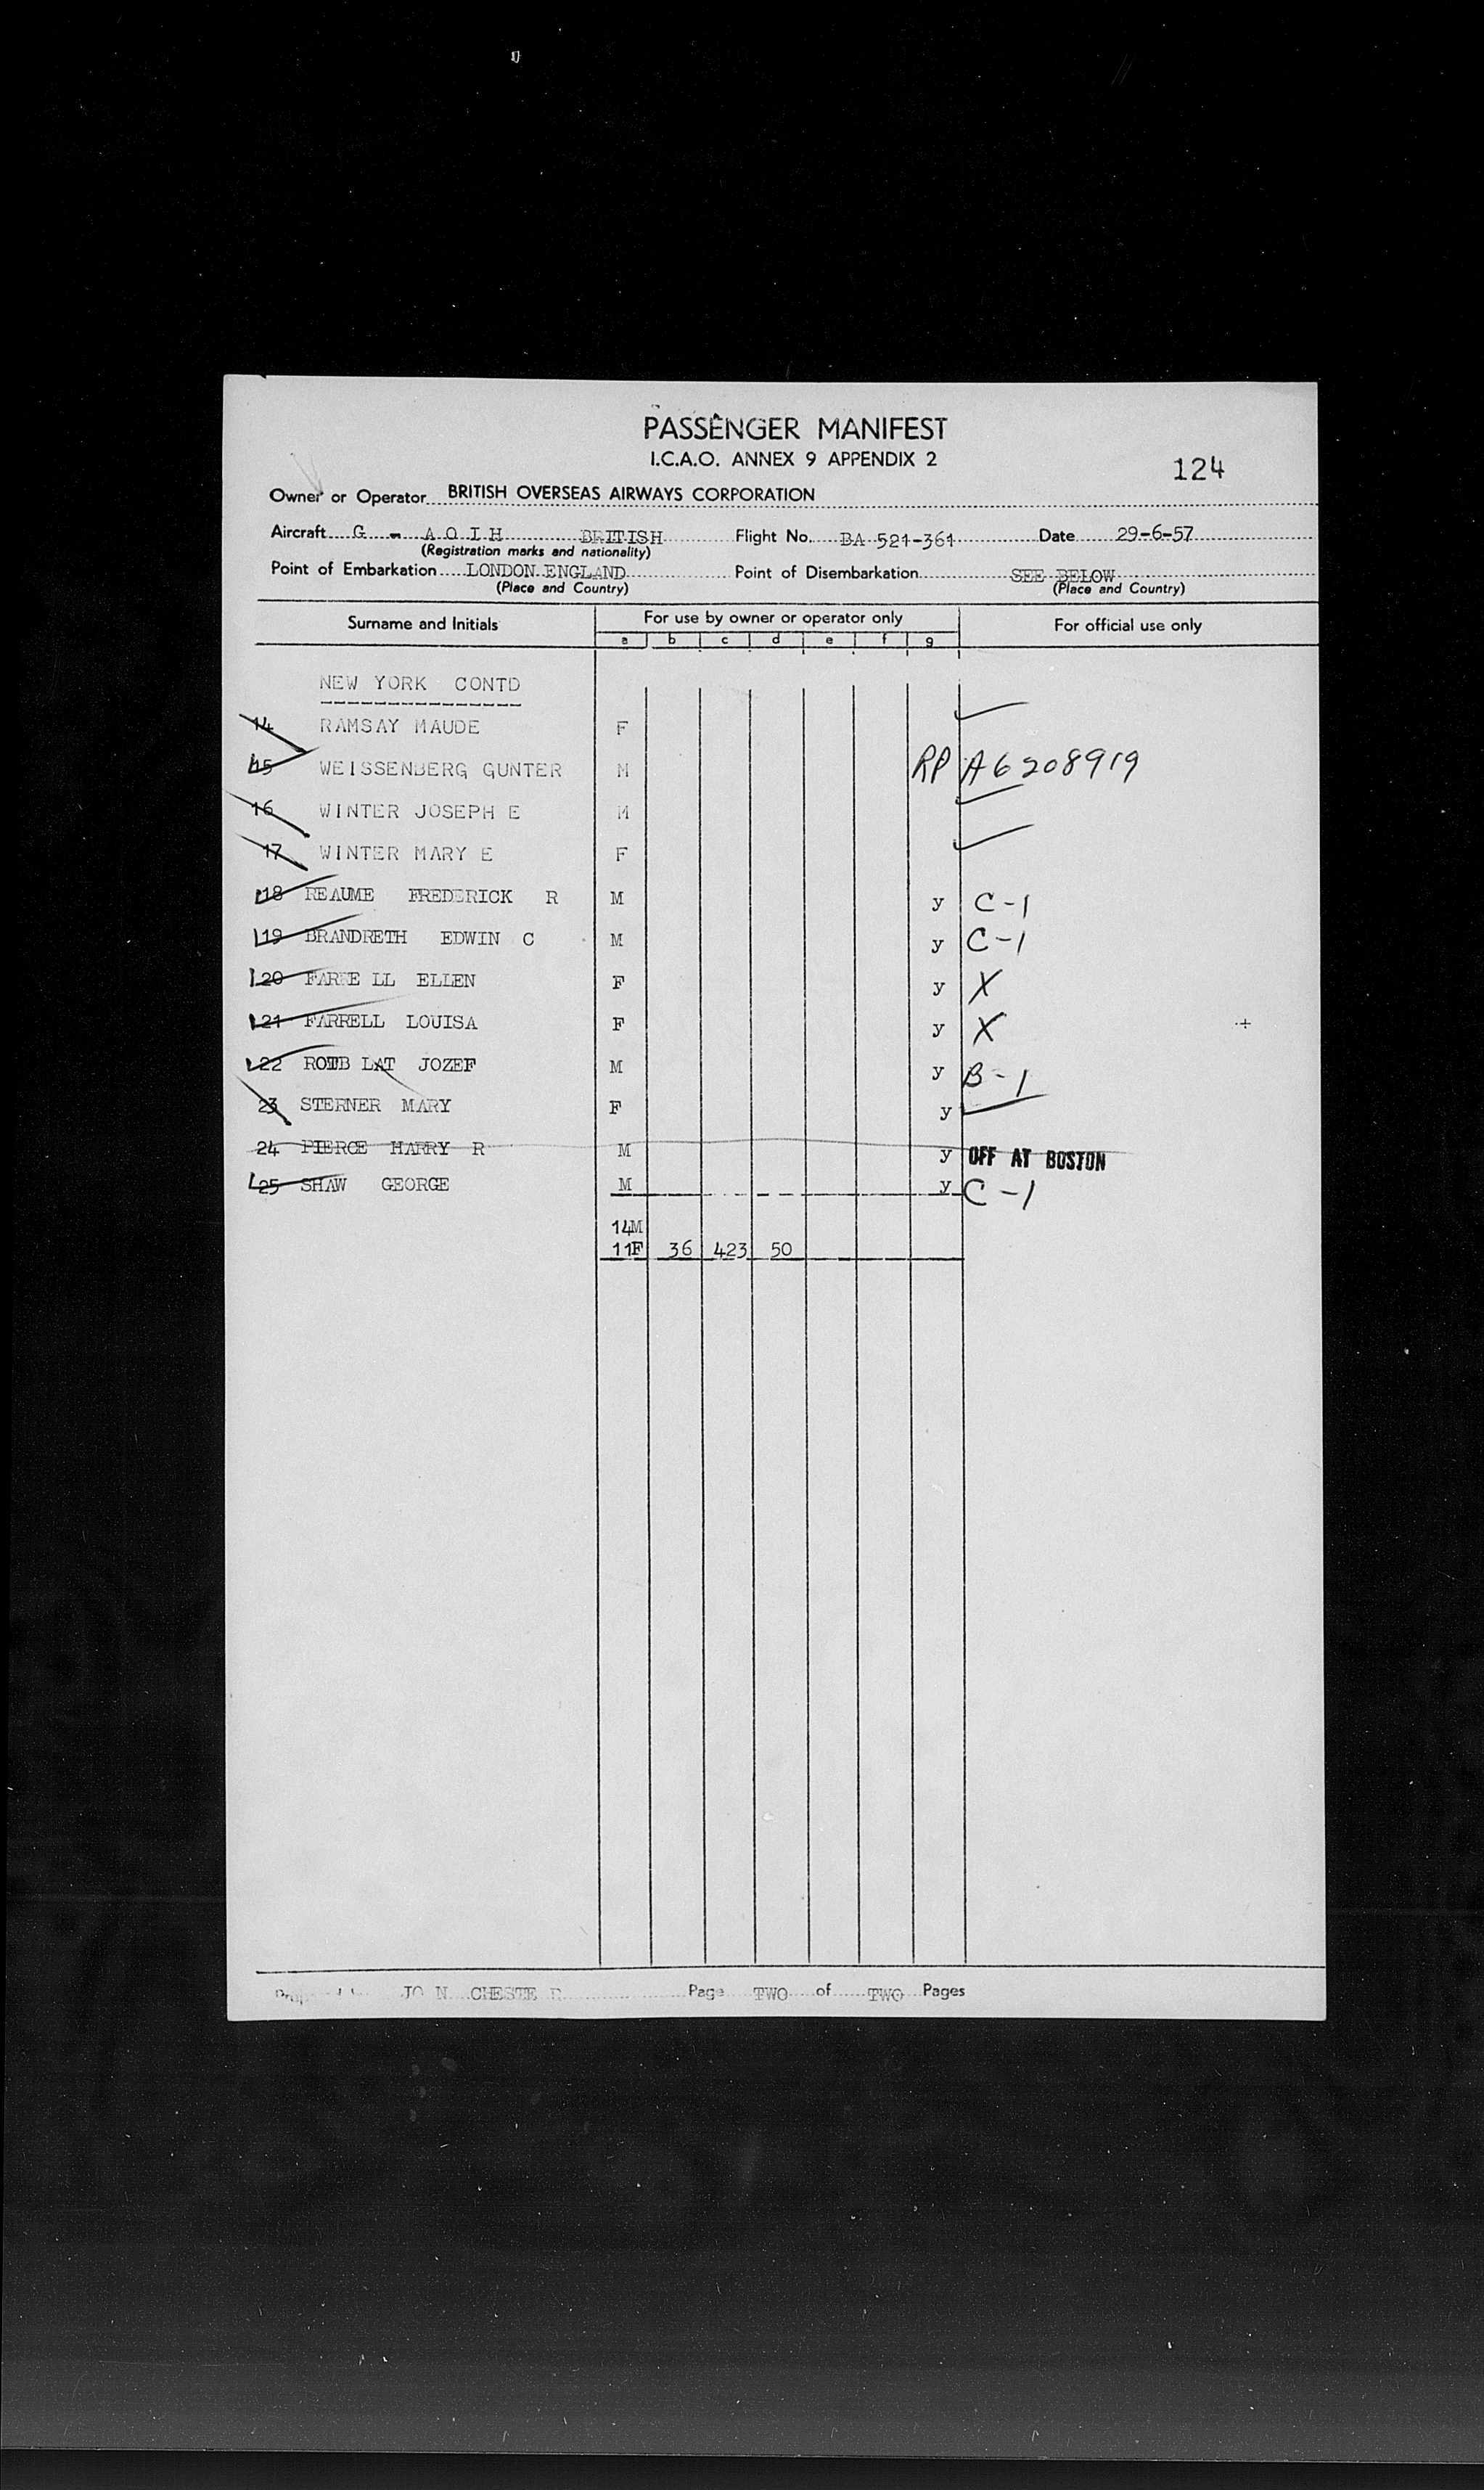 PASSENGER MANIFEST
I.C.A.O. ANNEX 9 APPENDIX 2
124
Owner or Operator BRITISH OVERSEAS AIRWAYS CORPORATION
Aircraft G - A O I H BRITISH Flight No. BA 521-361 Date 29-6-57
(Registration marks and nationality)
Point of Embarkation LONDON ENGLAND Point of Disembarkation SEE BELOW
(Place and Country) (Place and Country)
Surname and Initials For use by owner or operator only For official use only
a b c d e f g
NEW YORK CONTD
14 RAMSAY MAUDE F
15 WEISSENBERG GUNTER M RP A6208919
16 WINTER JOSEPH E M
17 WINTER MARY E F
18 REAUME FREDERICK R M y C-1
19 BRANDRETH EDWIN C M y C-1
20 FARRE LL ELLEN F y X
21 FARRELL LOUISA F y X
22 ROTB LAT JOZEF M y B-1
23 STERNER MARY F y
24 PIERCE HARRY R M y OFF AT BOSTON
25 SHAW GEORGE M y C-1
14M
11F 36 423 50
JO N CHESTE R Page TWO of TWO Pages